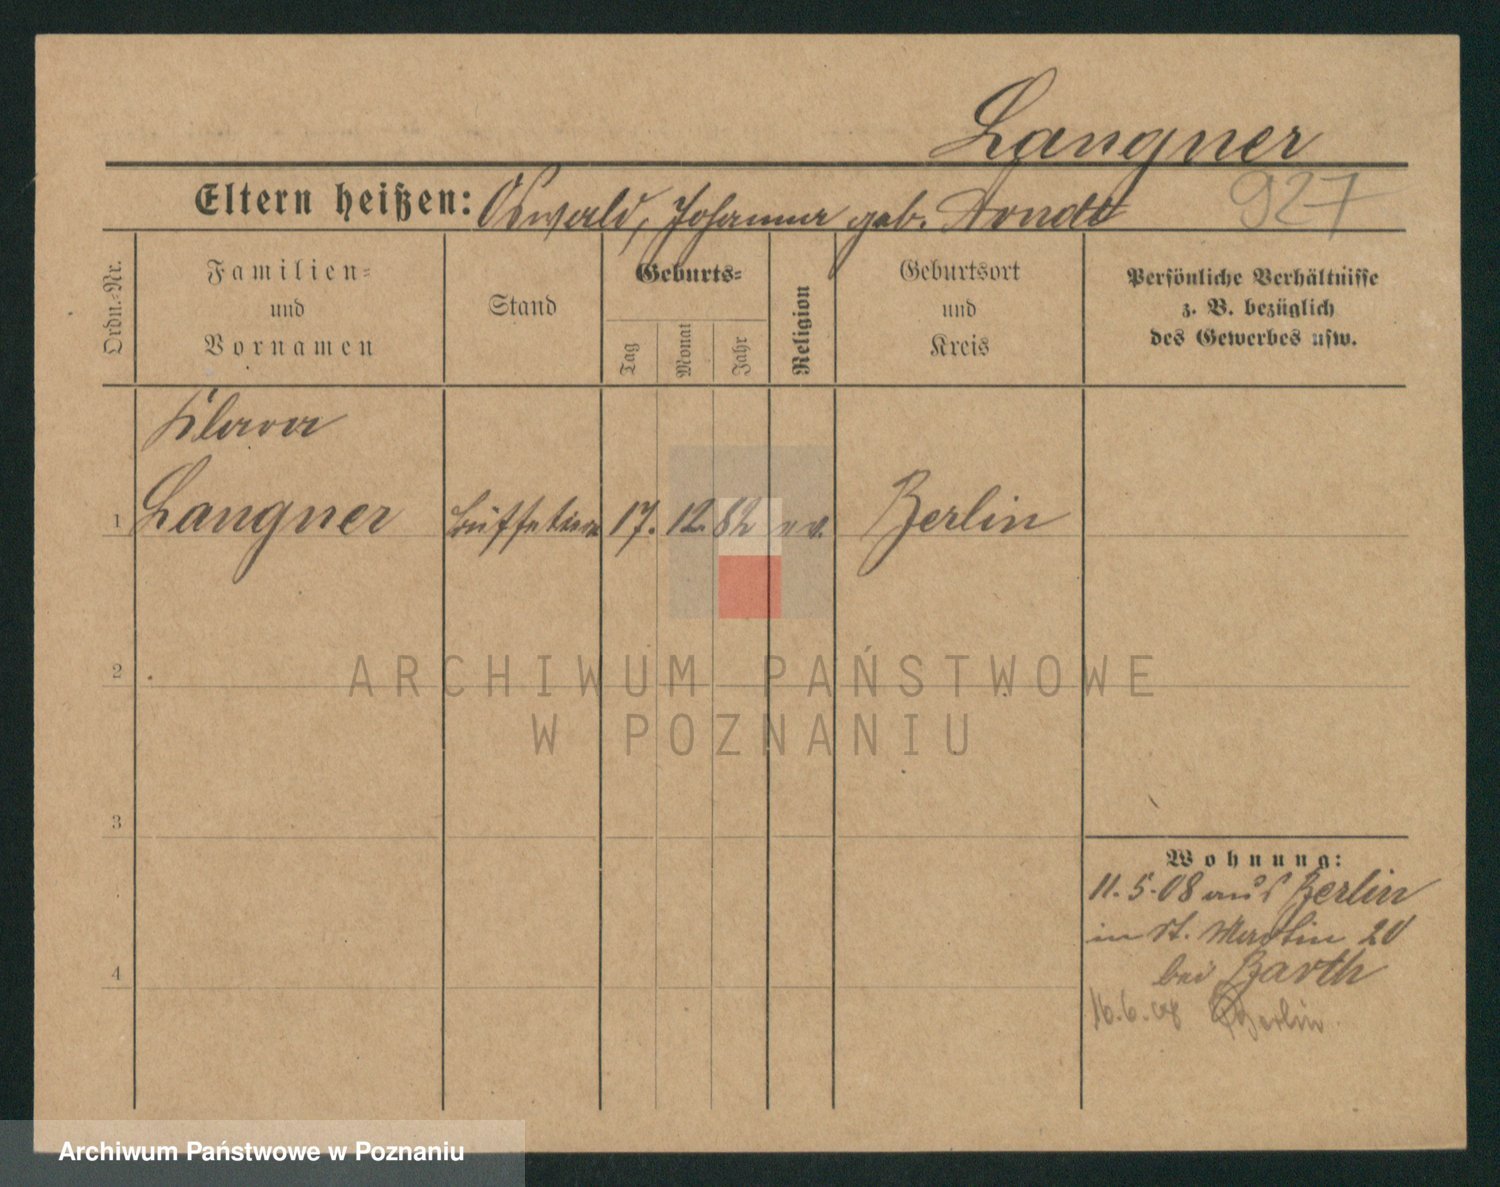 Langner
Eltern heißen: Oswald, Johanna geb. Arndt
927
Ordn.-Nr.
Familien-
und
Vornamen
Stand
Geburts-
Tag
Monat
Jahr
Religion
Geburtsort
und
Kreis
Persönliche Verhältnisse
z. B. bezüglich
des Gewerbes usw.
Klara
1 Langner Büffetiere 17. 12. 82 ev. Berlin
2
3
4
Wohnung:
11.5.08 aus Berlin
in St. Martin 20
bei Barth
16.6.08 Berlin
ARCHIWUM PAŃSTWOWE
W POZNANIU
Archiwum Państwowe w Poznaniu